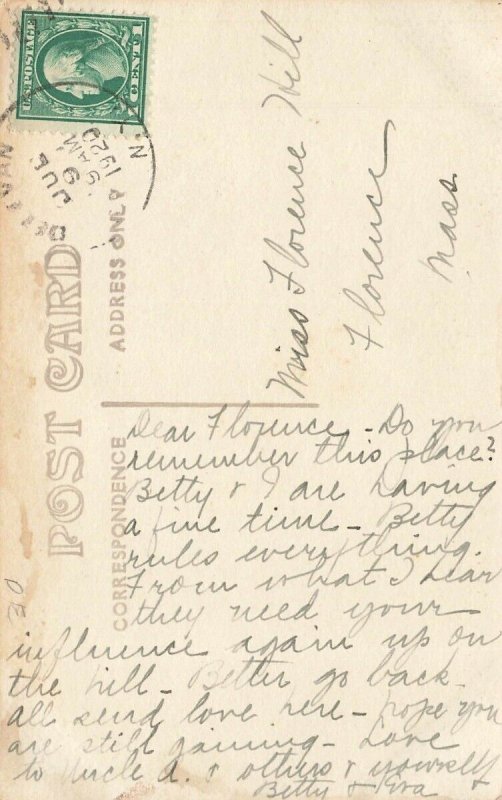 U.S. POSTAGE
1 CENT 1
9
AM
1920
POST CARD
ADDRESS ONLY
CORRESPONDENCE
Miss Florence Hill
Florence
Mass.
Dear Florence - Do you
remember this place?
Betty & I are having
a fine time - Betty
rules everything.
From what I hear
they need your
influence again up on
the hill - Better go back -
all send love here - hope you
are still gaining - Love
to Uncle A. & others & yourself
Betty &
30